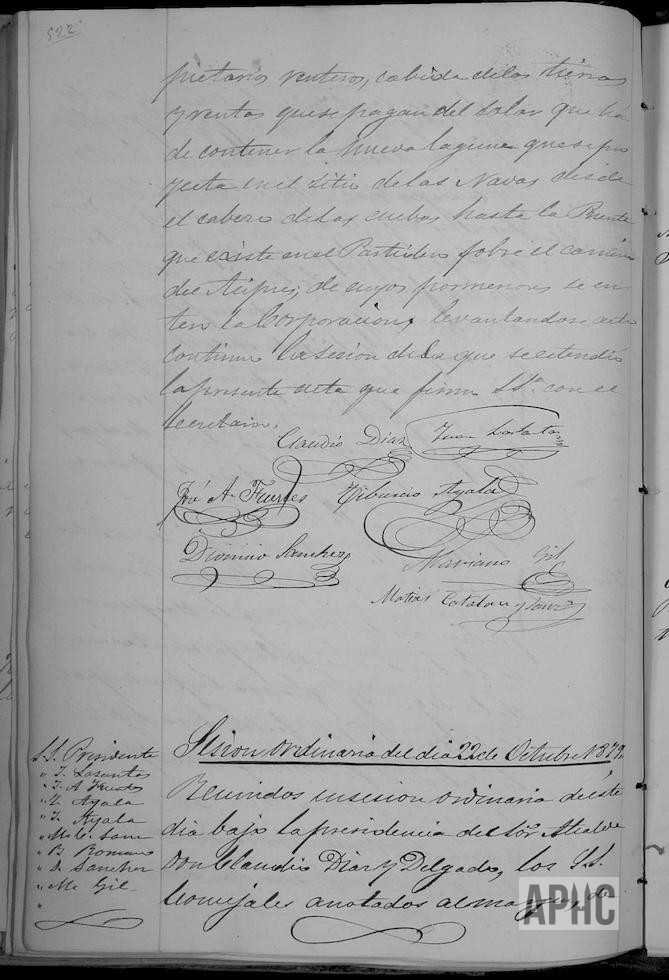 522
pietarios renteros, cabida de las tierras
y rentas que se pagan del solar que ha
de contener la nueva laguna que se pro
yecta en el sitio de las Navas desde
el cabero de las cuebas hasta la Puente
que existe en el Partidero sobre el camino
de de cuyos pormenores se en
tero la Corporacion, levantandose acto
continuo la sesion de la que se estendió
la presente acta que firma S.Sª. con el
Secretario.
Claudio Diaz Juan Losantos
José A. Fuertes Tiburcio Ayala
Dionisio Sanchez Mariano Gil
Matias Catalan y Sanz
Sesion ordinaria del dia 22 de Octubre 1879
S.S. Presidente
" J. Losantos
" J. A.
" Ayala
" T. Ayala
" M. C. Sanz
" B. Romano
" D. Sanchez
" M. Gil
"
Reunidos en sesion ordinaria de éste
dia bajo la presidencia del Sor. Alcalde
Don Claudio Diaz y Delgado, los S.S.
Concejales anotados al margen, de
APHC